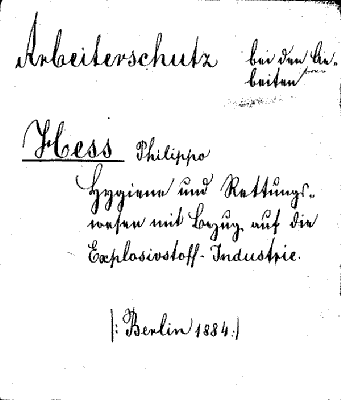 Arbeiterschutz bei den Ar-
beiten
Hess Philipp
Hygiene und Rettungs-
wesen mit Bezug auf die
Explosivstoff-Industrie.
|: Berlin 1884 :|